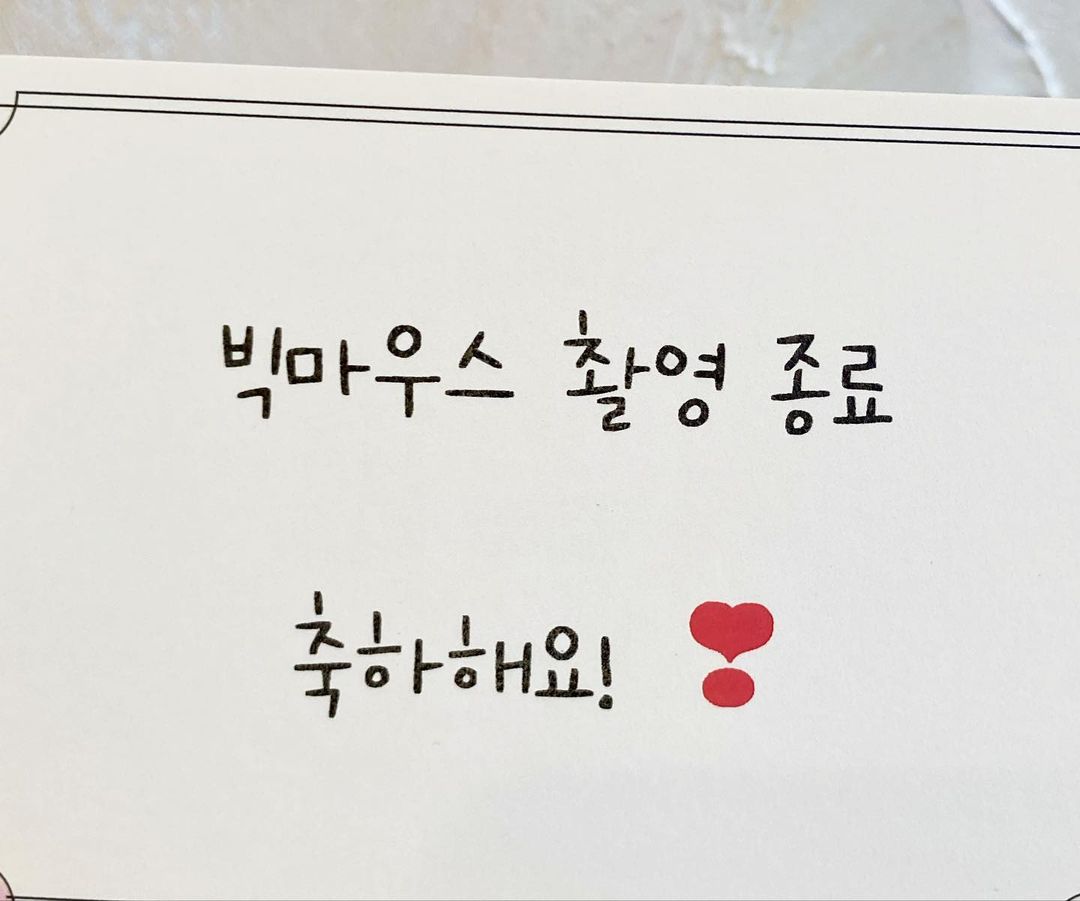 빅마우스 촬영 종료
축하해요! ❣